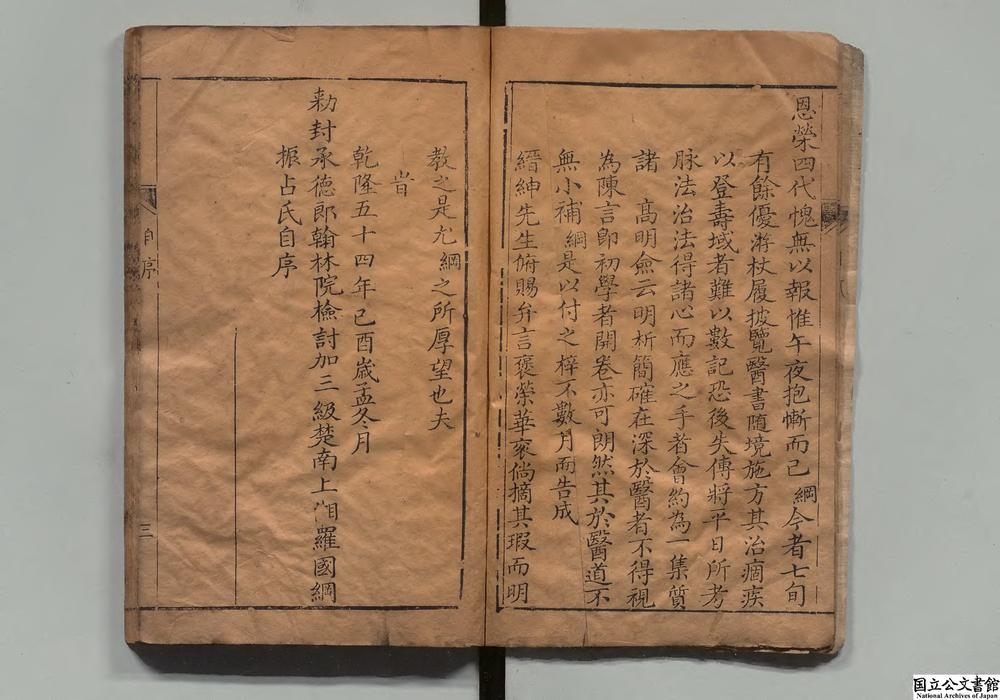 恩榮四代愧無以報惟午夜抱慚而已綱今者七旬
有餘優游杖履披覽醫書隨境施方其治痼疾
以登壽域者難以數記恐後失傳將平日所考
脉法治法得諸心而應之手者會約為一集質
諸 高明僉云明析簡確在深於醫者不得視
為陳言即初學者開卷亦可朗然其於醫道不
無小補綱是以付之梓不數月而告成
縉紳先生俯賜弁言褒榮華衮倘摘其瑕而明
教之是尤綱之所厚望也夫
旹
乾隆五十四年己酉歲孟冬月
勅封承德郎翰林院檢討加三級楚南上湘羅國綱
振占氏自序
自序
三
国立公文書館
National Archives of Japan